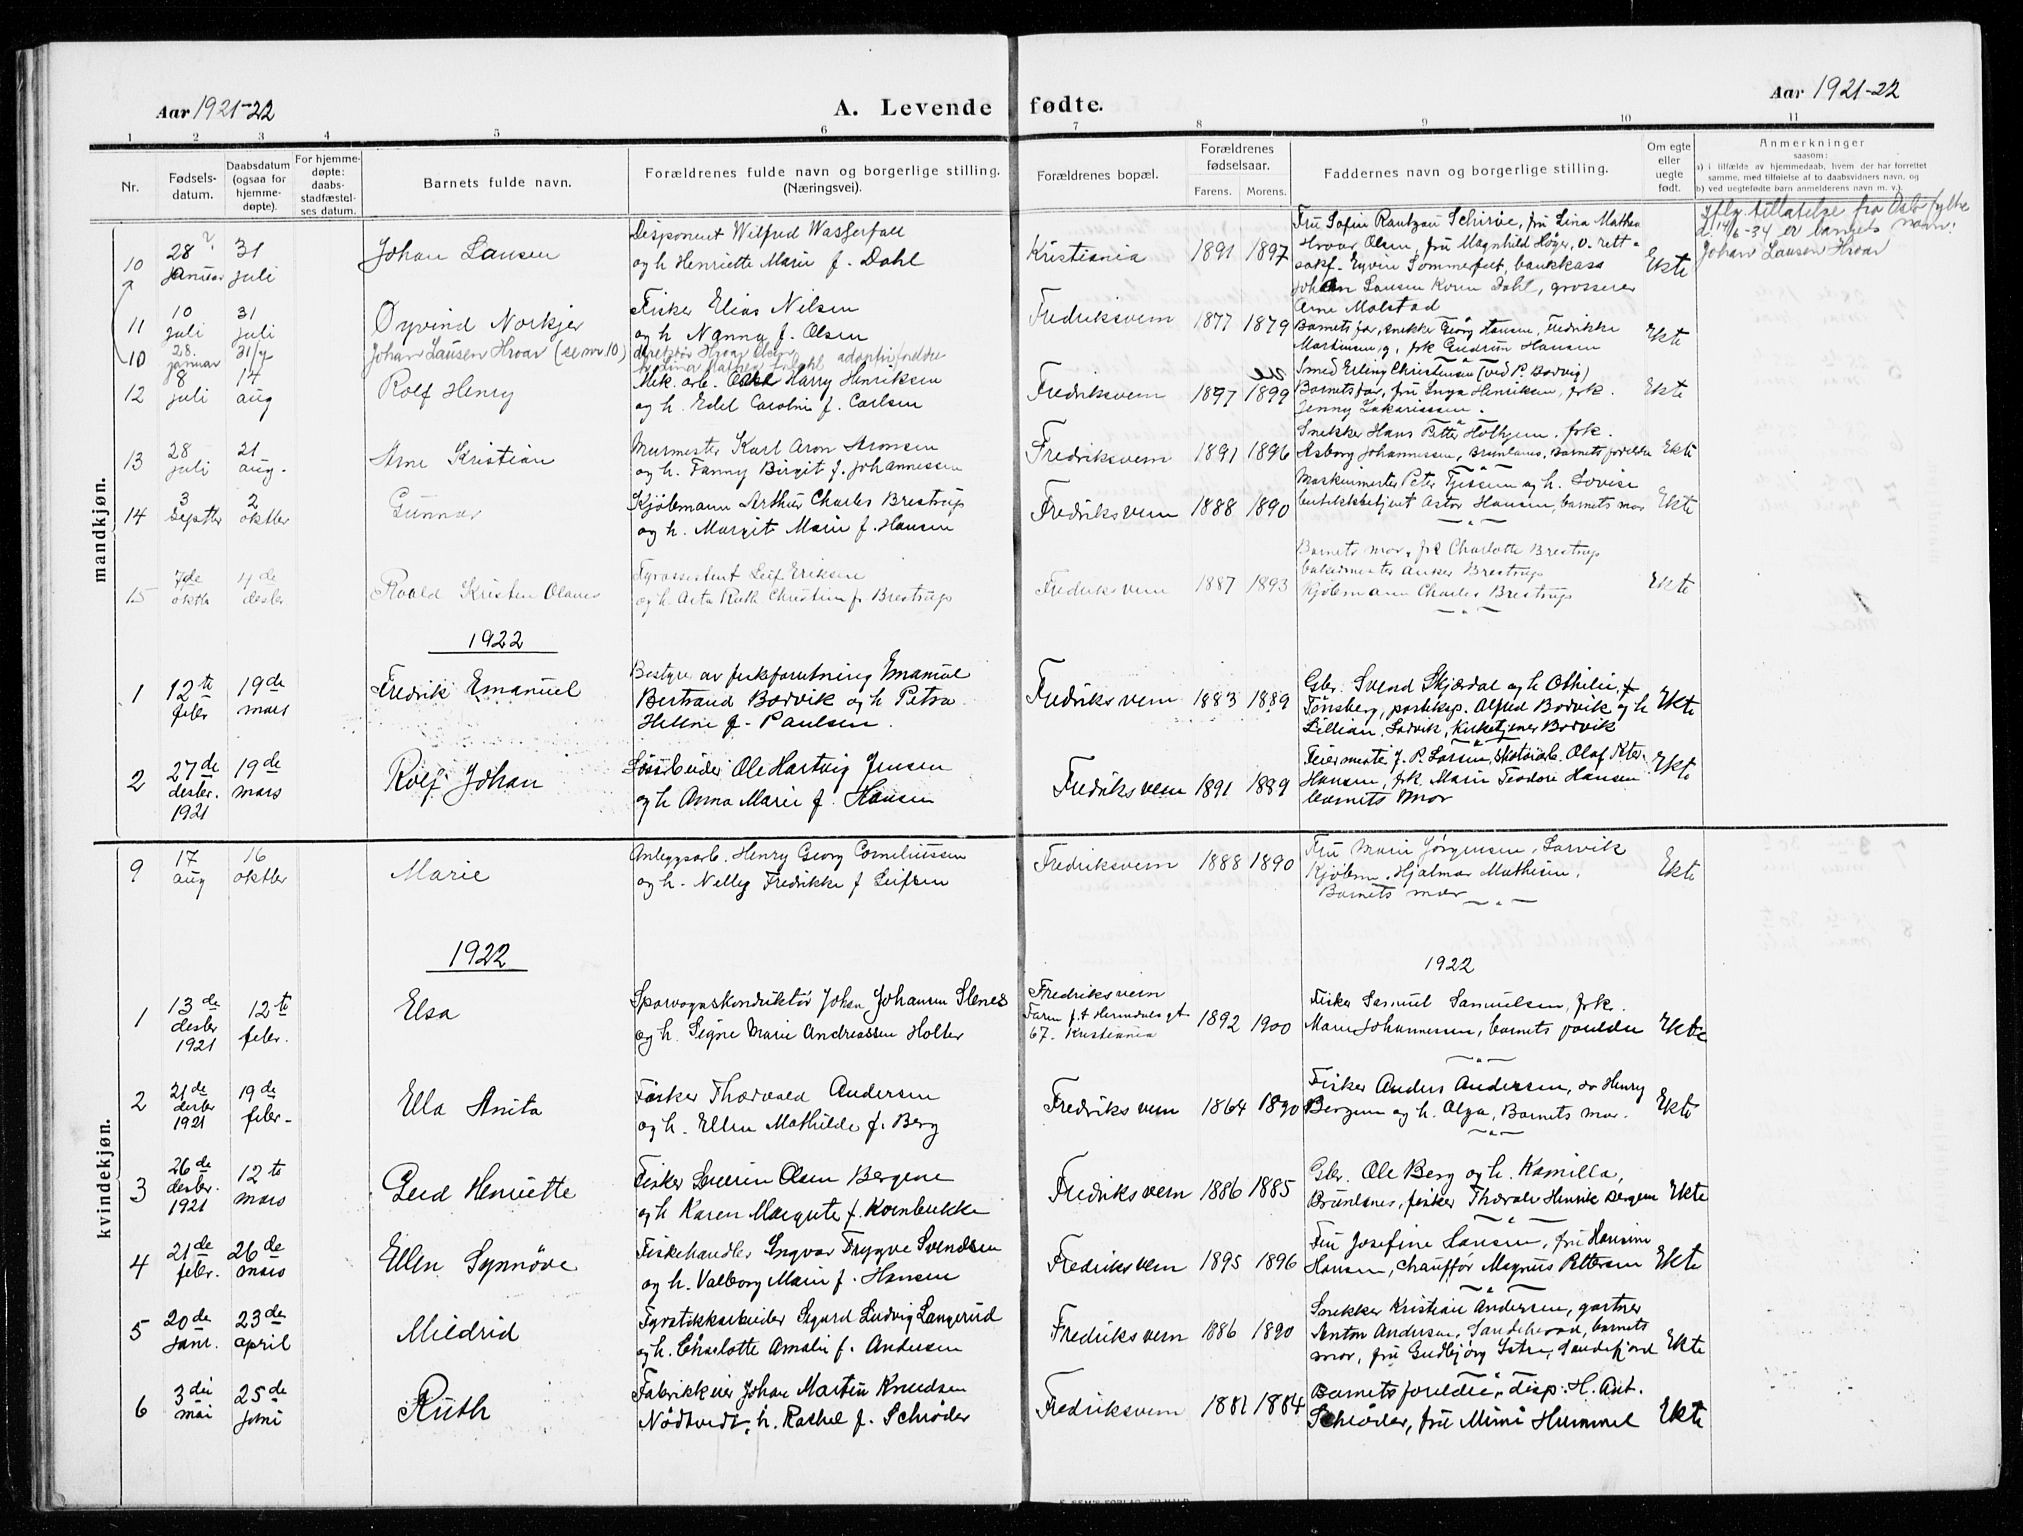 Aar 1921-22
A. Levende fødte.
Aar 1921-22
1 2 3 4 5 6 7 8 9 10 11
Nr.
Fødsels-
datum.
Daabsdatum
(ogsaa for
hjemme-
døpte).
For hjemme-
døpte:
daabs-
stadfæstel-
ses datum.
Barnets fulde navn.
Forældrenes fulde navn og borgerlige stilling.
(Næringsvei).
Forældrenes bopæl.
Forældrenes
fødselsaar.
Farens. Morens.
Faddernes navn og borgerlige stilling.
Om egte
eller
uegte
født.
Anmerkninger
saasom:
a) i tilfælde av hjemmedaab, hvem der har forrettet
samme, med tilføielse af to daabsvidners navn, og
b) ved uegtefødte barn anmelderens navn m. v.).
mandkjøn.
10
28 ?
januar
31
juli
Johan Lausen
Disponent Wilfred Wasserfall
og h Henriette Marie f. Dahl
Kristiania
1891 1897
Fru Sofie Rantzau Schirøe, fru Lina Mathea
Hroar Olsen, fru Magnhild Høyer, o. rett-
sakf. Eyvin Sommerfelt, bankkass
Johan Lausen Koren Dahl, grosserer
Arne Malstad
Ekte
Iflg. tillatelse fra Oslo fylke
d. 14/6-34 er barnets navn:
Johan Lausen Hroar
11
10
juli
31
juli
Øyvind Norkjer
Fisker Elias Nilsen
og h Nanna f. Olsen
Fredriksvern
1877 1879
Barnets far, snekker Georg Hansen, Fredrikke
Martinsen, frk Gudrun Hansen
Ekte
10
28.
januar
31/7
Johan Lausen Hroar (se nr. 10)
direktør Hroar Olsen adoptivforeldre
12
8
juli
14
aug
Rolf Henry
Mek. arb. Harry Henriksen
og h. Edel Caroline f. Carlsen
Fredriksvern
1897 1899
Smed Erling Christensen (ved P. Bodvig)
Barnets far, fru Inga Henriksen, frk.
Jenny Zakariassen.
Ekte
13
28
juli
21
aug.
Arne Kristian
Murmester Karl Aron Aronsen
og h. Fanny Birgit f. Johannessen
Fredriksvern
1891 1896
Snekker Hans Petter Holtgem. frk.
Asborg Johannessen, Brunlanes, barnets foreldre
Ekte
14
3
septbr
2
oktbr
Gunnar
Kjøbmann Arthur Charles Brestrup
og h. Margit Marie f. Hansen
Fredriksvern
1888 1890
Maskinmester Peter Tjessem og h. Lovise
butikkbetjent Astor Hansen, barnets mor
Ekte
15
7de
oktbr
4de
desbr
Roald Kristen Olaves
Fyrassistent Leif Eriksen
og h. Asta Ruth Christine f. Brestrup
Fredriksvern
1887 1893
Barnets mor, frk Charlotte Brestrup
bakermester Anker Brestrup
Kjøbmann Charles Brestrup
Ekte
1922
1
12te
febr
19de
mars
Fredrik Emanuel
Bestyrer av fiskforretning Emanuel
Bertrand Bodvik og h Petra
Helene f. Paulsen.
Fredriksvern
1883 1889
Gbr. Svend Skjærdal og h Othilie,
Tønsberg, posteksp. Alfred Bodvik og h
Lillian, Larvik, Kirketjener Bodvik
Ekte
2
27de
desbr.
1921
19de
mars
Rolf Johan
Løsarbeider Ole Hartvig Jensen
og h Anna Marie f. Hansen
Fredriksvern
1891 1889
Feiermester J. P. Larsen, skotøiarb. Olaf Peter
Hansen, frk. Marie Teodore Hansen
barnets mor
Ekte
kvindekjøn.
9
17
aug
16
oktbr
Marie
Anlegsarb. Henry Georg Corneliussen
og h. Nelly Fredrikke f Leifsen
Fredriksvern
1888 1890
Fru Marie Jørgensen, Larvik
Kjøbm. Hjalmar Mathisen,
Barnets mor
Ekte
1922
1922
1
13de
desbr
1921
12te
febr.
Elsa
Sporvognskonduktør Johan Johansen Stenes
og h. Signe Marie Andreassen Holter
Fredriksvern
Faren f.t Hermdals gt
67. Kristiania
1892 1900
Fisker Samuel Samuelsen, frk.
Marie Johannessen, barnets foreldre
Ekte
2
21de
desbr
1921
19de
febr.
Ella Anita
Fisker Thorvald Andersen
og h. Ellen Mathilde f. Berg
Fredriksvern
1864 1890
Fisker Anders Andersen, do Henry
Bergem og h. Olga, Barnets mor.
Ekte
3
26de
desbr.
1921
12te
mars
Gerd Henriette
Fisker Severin Olsen Bergene
og h Karen Margrete f. Kornbukke
Fredriksvern
1886 1885
Gbr. Ole Berg og h. Kamilla,
Brunlanes, fisker Thorvald Henrik Bergem
Ekte
4
21de
febr.
26de
mars
Ellen Synnøve
Fiskehandler Ingvar Trygve Svendsen
og h. Valborg Marie f. Hansen
Fredriksvern
1895 1896
Fru Josefine Hansen, fru Hansine
Hansen, chauffør Magnus Pettersen
Ekte
5
20de
janr.
23de
april
Mildrid
Fyrstikkarbeider Sigurd Ludvig Langerud
og h. Charlotte Amalie f. Andersen
Fredriksvern
1886 1890
Snekker Kristian Andersen, gartner
Anton Andersen, Sandeherad, barnets
mor, fru Gudbjørg Istre, Sandefjord
Ekte
6
3die
mai
25de
juni
Ruth
Fabrikkeier Johan Martin Knudsen
Nødtvedt, h. Rachel f. Schrøder
Fredriksvern
1881 1884
Barnets foreldre, disp. H. Ant.
Schrøder, fru Mimi Hummel
Ekte